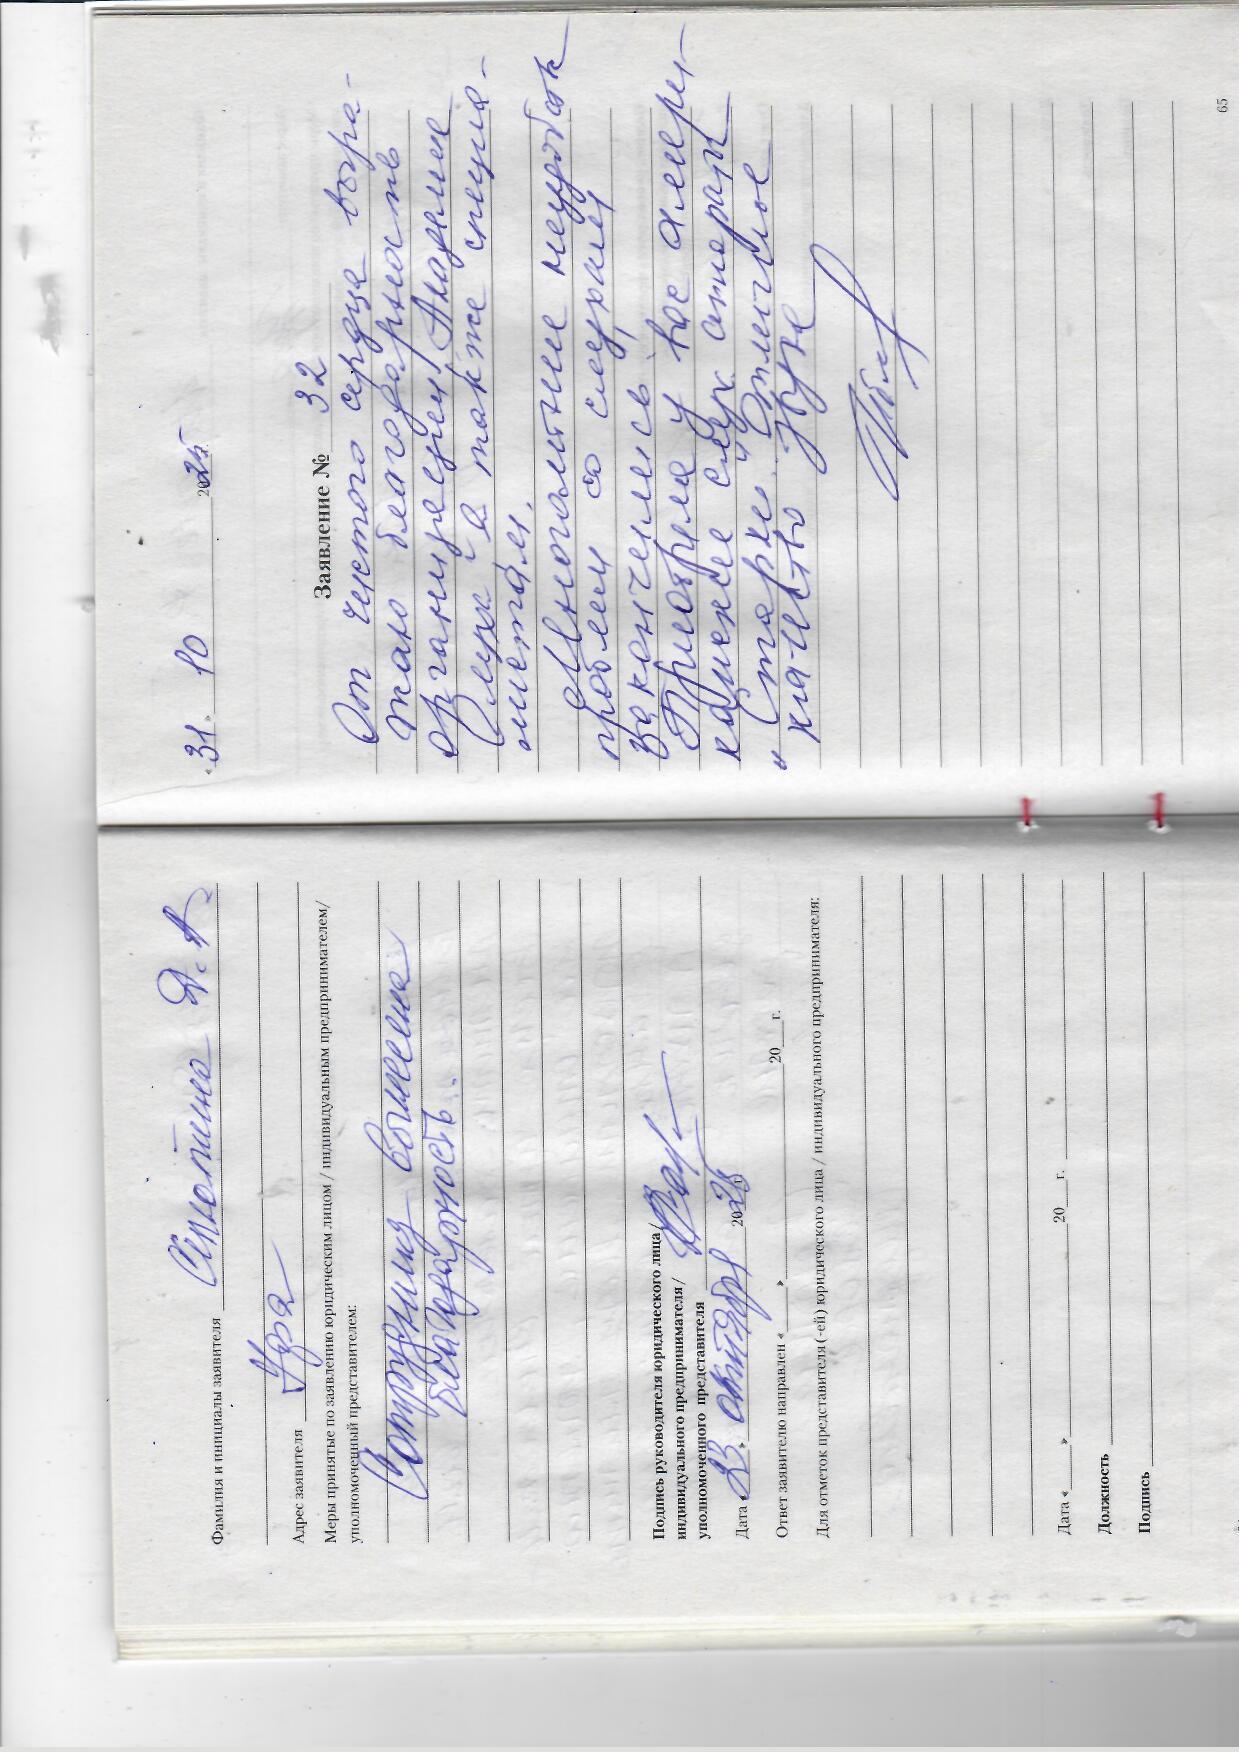 Фамилия и инициалы заявителя Сиротина Д. А.
Адрес заявителя Уфа
Меры принятые по заявлению юридическим лицом / индивидуальным предпринимателем/
уполномоченный представителем:
Сотруднику вынесена
благодарность.
Подпись руководителя юридического лица/
индивидуального предпринимателя/
уполномоченного представителя
Дата «23» октября 2025 г.
Ответ заявителю направлен «____»____________ 20___ г.
Для отметок представителя (-ей) юридического лица / индивидуального предпринимателя:
Дата «____»____________ 20___ г.
Должность
Подпись
«31» 10 2025
Заявление № 32
От чистого сердца выра-
жаю благодарность
организации Академия
Слуха, а также специа-
листам.
Многолетние неудобст
проблем со слухом
закончились!
Приобрела у вас амери-
канские слух. аппараты
"Старки". Отличное
качество звука
65